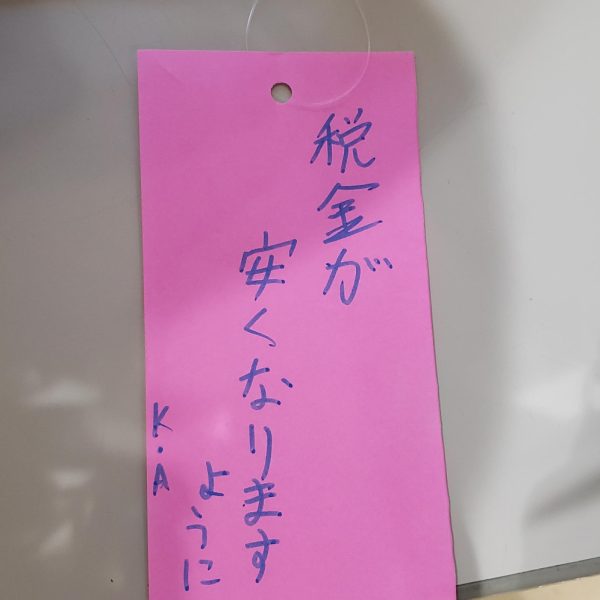 税金が
安くなります
ように
K.A